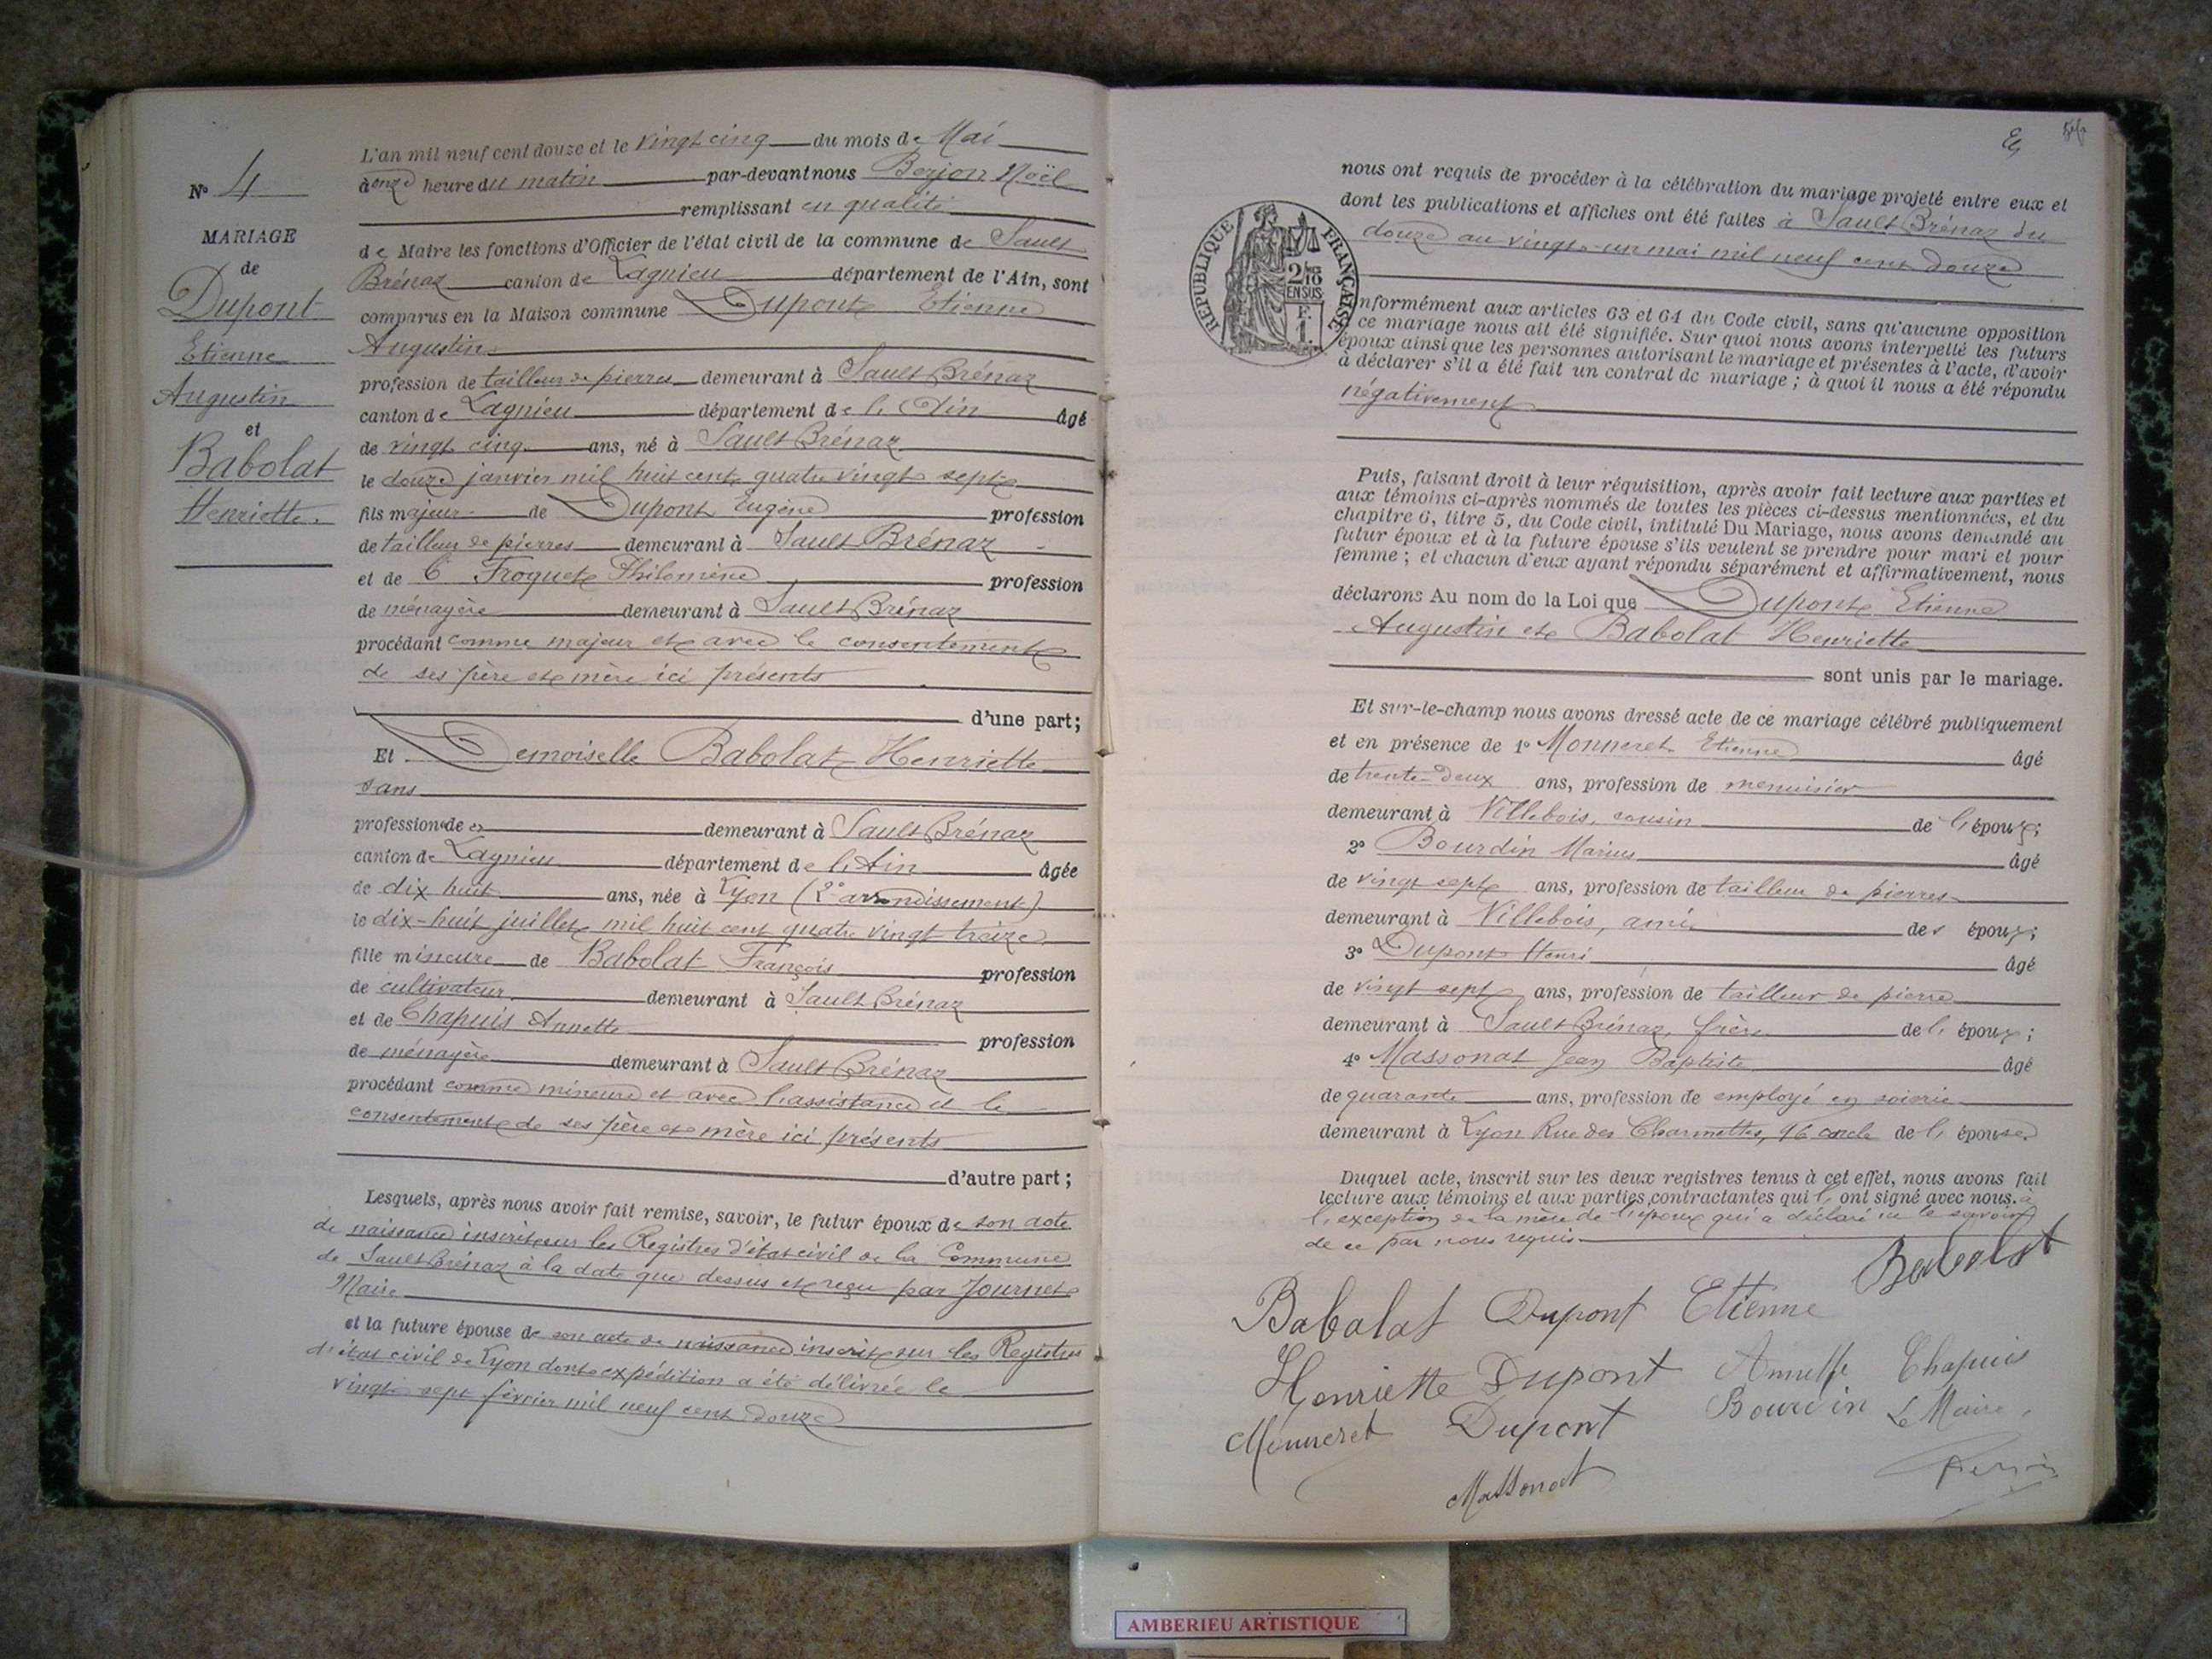 N° 4
MARIAGE
de
Dupont
Etienne
Augustin
et
Babolat
Henriette.
L'an mil neuf cent douze et le vingt cinq du mois de Mai
à onze heure du matin par-devant nous Berjon Noël
remplissant en qualité
de Maire les fonctions d'Officier de l'état civil de la commune de Sault
Brénaz canton de Lagnieu département de l'Ain, sont
comparus en la Maison commune Dupont Etienne
Augustin
profession de tailleur de pierres demeurant à Sault Brénaz
canton de Lagnieu département de l'Ain âgé
de vingt cinq ans, né à Sault Brénaz
le douze janvier mil huit cent quatre vingt sept
fils majeur de Dupont Eugène profession
de tailleur de pierres demeurant à Sault Brénaz
et de Froquet Philomène profession
de ménagère demeurant à Sault Brénaz
procédant comme majeur et avec le consentement
de ses père et mère ici présents
d'une part;
Et Demoiselle Babolat Henriette
sans
profession de demeurant à Sault Brénaz
canton de Lagnieu département de l'Ain âgée
de dix huit ans, née à Lyon (2e arrondissement)
le dix-huit juillet mil huit cent quatre vingt treize
fille mineure de Babolat François profession
de cultivateur demeurant à Sault Brénaz
et de Chapuis Annette profession
de ménagère demeurant à Sault Brénaz
procédant comme mineure et avec l'assistance et le
consentement de ses père et mère ici présents
d'autre part;
Lesquels, après nous avoir fait remise, savoir, le futur époux de son acte
de naissance inscrit sur les Registres d'état civil de la Commune
de Sault Brénaz à la date que dessus et reçu par Journet
Maire
et la future épouse de son acte de naissance inscrit sur les Registres
d'état civil de Lyon dont expédition a été délivrée le
vingt sept février mil neuf cent douze
nous ont requis de procéder à la célébration du mariage projeté entre eux et
dont les publications et affiches ont été faites à Sault Brénaz du
douze au vingt-un mai mil neuf cent douze
RÉPUBLIQUE FRANÇAISE
2/10
EN SUS
F.
1.
nformément aux articles 63 et 64 du Code civil, sans qu'aucune opposition
ce mariage nous ait été signifiée. Sur quoi nous avons interpellé les futurs
époux ainsi que les personnes autorisant le mariage et présentes à l'acte, d'avoir
à déclarer s'il a été fait un contrat de mariage; à quoi il nous a été répondu
négativement
Puis, faisant droit à leur réquisition, après avoir fait lecture aux parties et
aux témoins ci-après nommés de toutes les pièces ci-dessus mentionnées, et du
chapitre 6, titre 5, du Code civil, intitulé Du Mariage, nous avons demandé au
futur époux et à la future épouse s'ils veulent se prendre pour mari et pour
femme; et chacun d'eux ayant répondu séparément et affirmativement, nous
déclarons Au nom de la Loi que Dupont Etienne
Augustin et Babolat Henriette
sont unis par le mariage.
Et sur-le-champ nous avons dressé acte de ce mariage célébré publiquement
et en présence de 1° Monneret Etienne âgé
de trente-deux ans, profession de menuisier
demeurant à Villebois, cousin de l'époux;
2° Bourdin Marius âgé
de vingt sept ans, profession de tailleur de pierres
demeurant à Villebois, ami des époux;
3° Dupont Henri âgé
de vingt sept ans, profession de tailleur de pierre
demeurant à Sault Brénaz, frère de l'époux;
4° Massonat Jean Baptiste âgé
de quarante ans, profession de employé en soierie
demeurant à Lyon Rue des Charmettes, 96 oncle de l'épouse.
Duquel acte, inscrit sur les deux registres tenus à cet effet, nous avons fait
lecture aux témoins et aux parties contractantes qui l'ont signé avec nous. à
l'exception de la mère de l'époux qui a déclaré ne le savoir
de ce par nous requis
Babolat
Babalat Dupont Etienne
Henriette Dupont Annette Chapuis
Monneret Dupont Bourdin Le Maire,
Massonat
AMBERIEU ARTISTIQUE